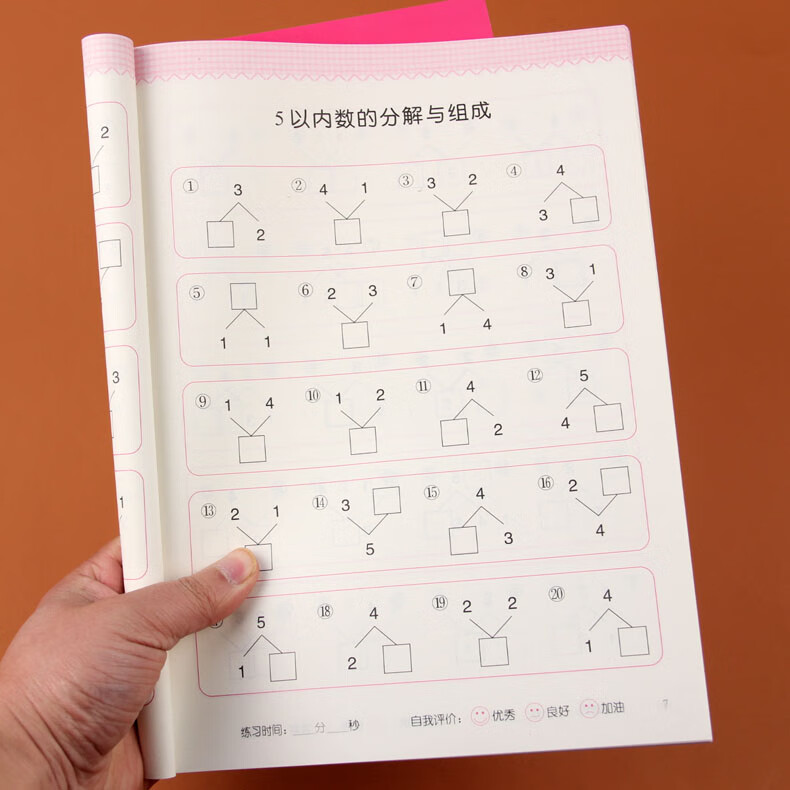 5以内数的分解与组成
① 3 ② 4 1 ③ 3 2 ④ 4
2 3
⑤ ⑥ 2 3 ⑦ ⑧ 3 1
1 1 1 4
⑨ 1 4 ⑩ 1 2 ⑪ 4 ⑫ 5
2 4
⑬ 2 1 ⑭ 3 ⑮ 4 ⑯ 2
5 3 4
5 ⑱ 4 ⑲ 2 2 ⑳ 4
1 2 1
练习时间: 分 秒 自我评价: 优秀 良好 加油
7
2
3
1